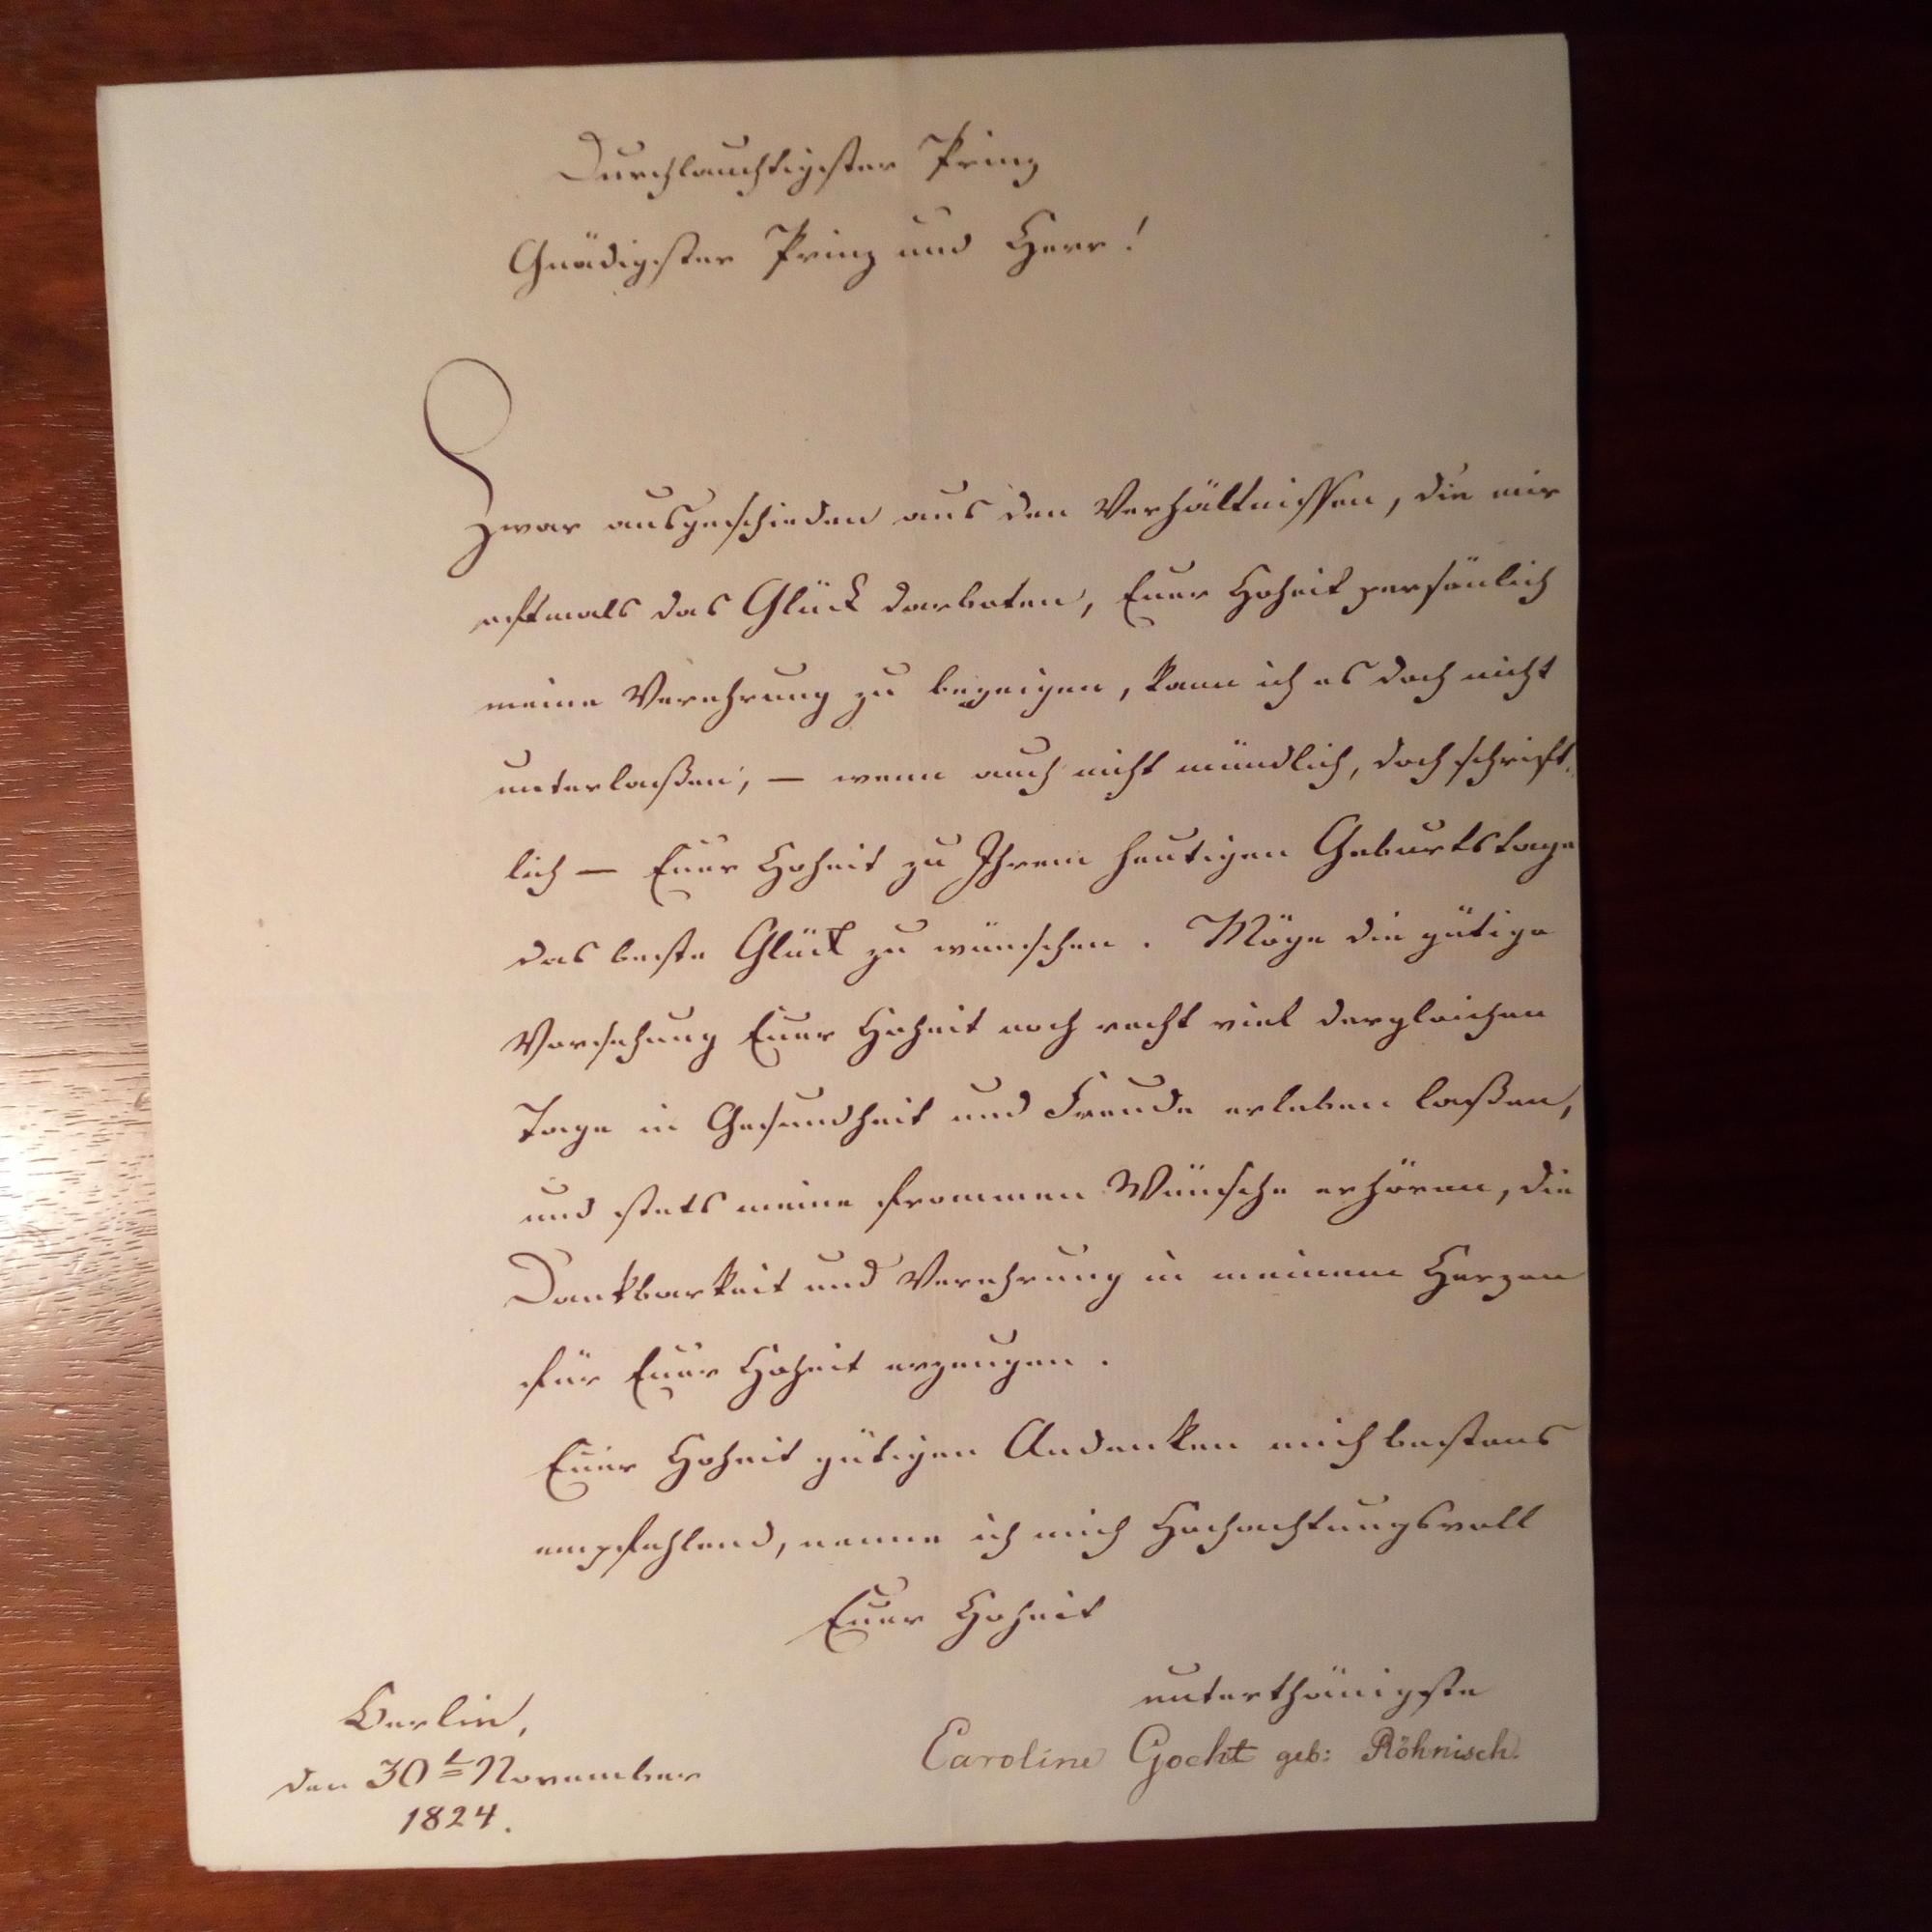 Durchlauchtigster Prinz
Gnädigster Prinz und Herr!
Zwar ausgeschieden aus den Verhältnissen, die mir
oftmals das Glück darboten, Euer Hoheit persönlich
meine Verehrung zu bezeigen, kann ich es doch nicht
unterlaßen, — wenn auch nicht mündlich, doch schrift-
lich — Euer Hoheit zu Ihrem heutigen Geburtstage
das beste Glück zu wünschen. Möge die gütige
Vorsehung Euer Hoheit noch recht viel dergleichen
Tage in Gesundheit und Freude erleben laßen,
und stets meine frommen Wünsche erhören, die
Dankbarkeit und Verehrung in meinem Herzen
für Euer Hoheit erzeugen.
Euer Hoheit gütigen Andenken mich bestens
empfehlend, nenne ich mich Hochachtungsvoll
Euer Hoheit
unterthänigste
Caroline Gocht geb: Röhnisch.
Berlin,
den 30t November
1824.